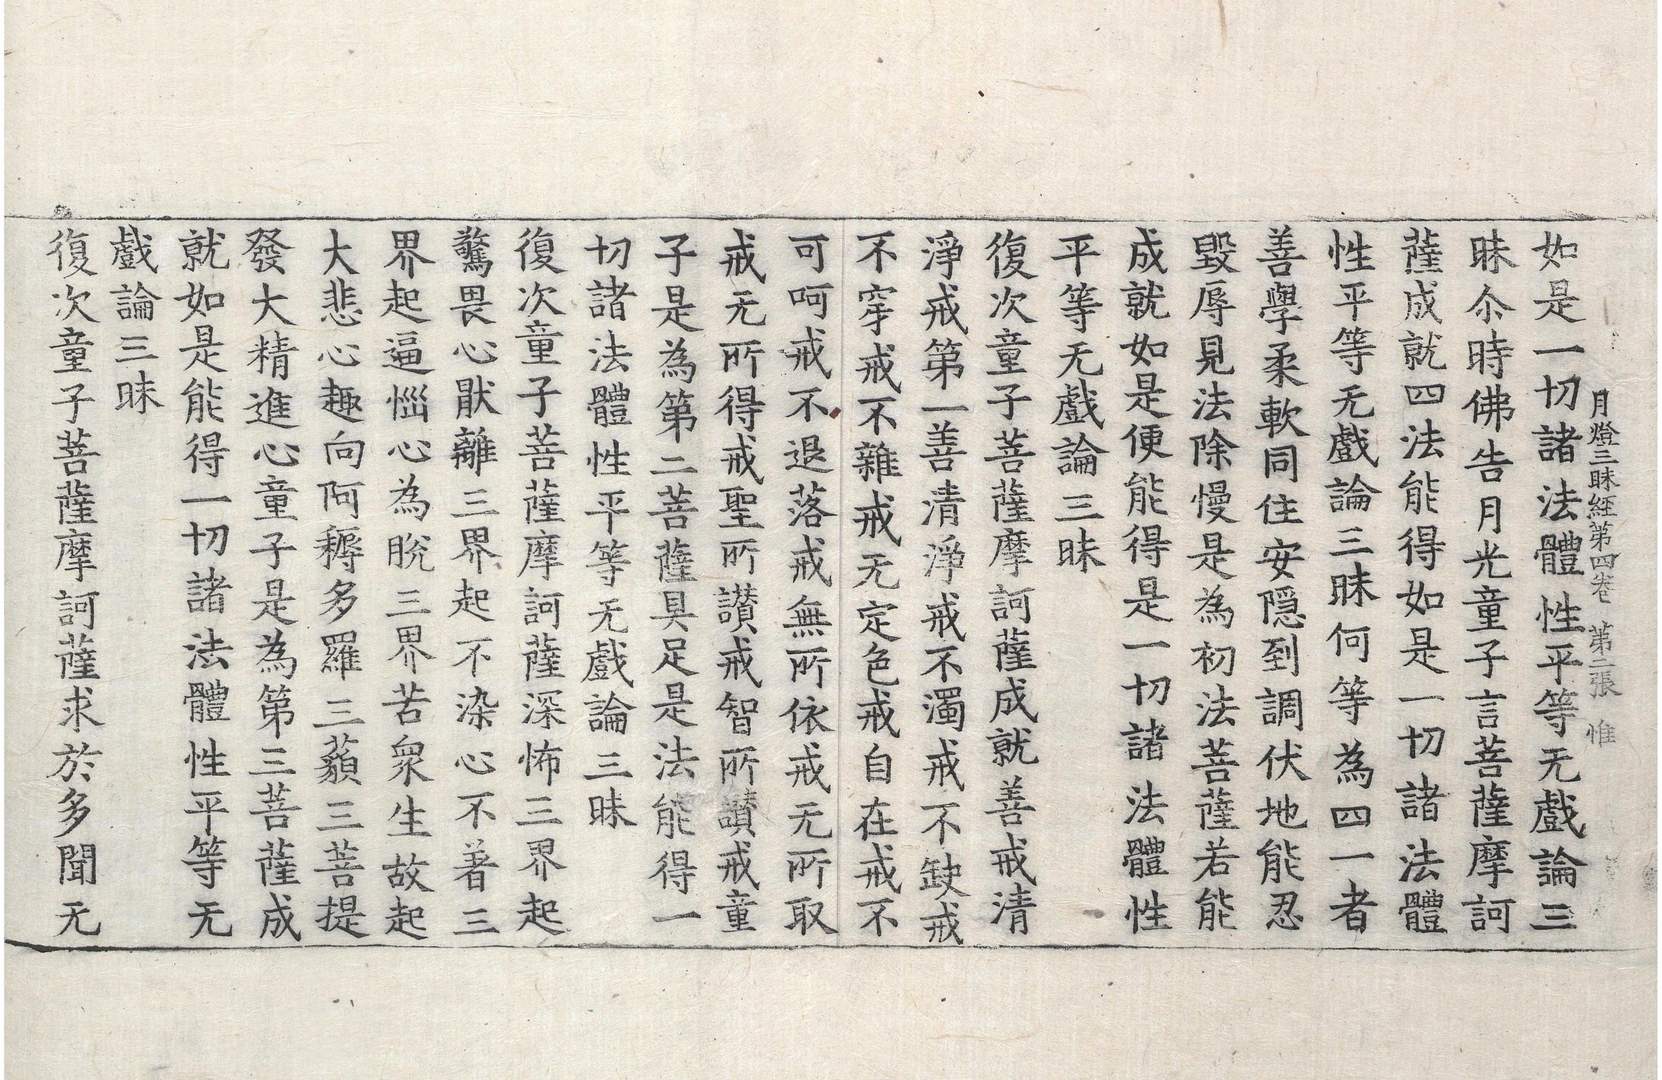 月燈三昧経第四卷 第二張 惟
如是一切諸法體性平等无戲論三
昧尒時佛告月光童子言菩薩摩訶
薩成就四法能得如是一切諸法體
性平等无戲論三昧何等為四一者
善學柔軟同住安隱到調伏地能忍
毀辱見法除慢是為初法菩薩若能
成就如是便能得是一切諸法體性
平等无戲論三昧
復次童子菩薩摩訶薩成就善戒清
淨戒第一善清淨戒不濁戒不缺戒
不穿戒不雜戒无定色戒自在戒不
可呵戒不退落戒無所依戒无所取
戒无所得戒聖所讃戒智所讃戒童
子是為第二菩薩具足是法能得一
切諸法體性平等无戲論三昧
復次童子菩薩摩訶薩深怖三界起
驚畏心猒離三界起不染心不著三
界起逼惱心為脫三界苦衆生故起
大悲心趣向阿耨多羅三藐三菩提
發大精進心童子是為第三菩薩成
就如是能得一切諸法體性平等无
戲論三昧
復次童子菩薩摩訶薩求於多聞无